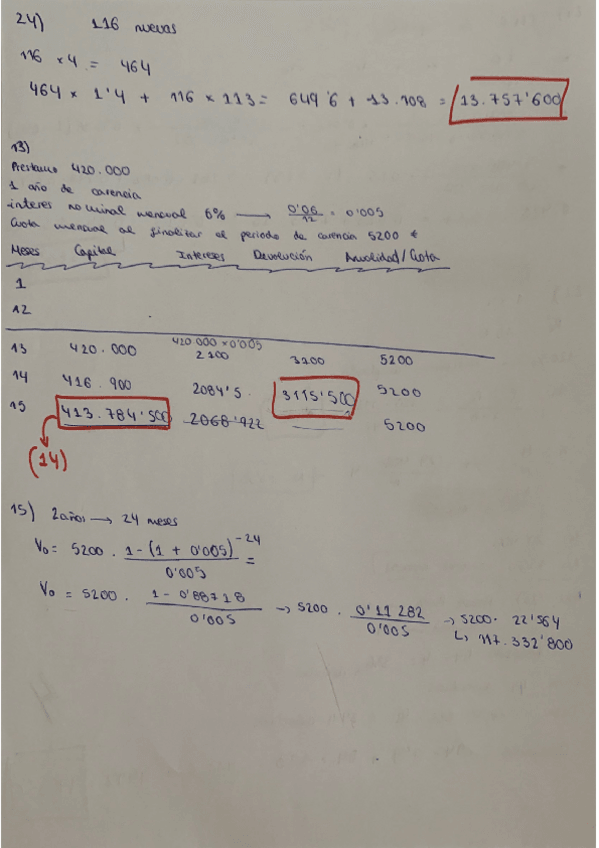 24) 116 nuevas
116 × 4 = 464
464 × 1'4 + 116 × 113 = 649'6 + 13.108 = 13.757'600
13)
Prestamo 420.000
1 año de carencia
interes nominal mensual 6% → 0'06/12 = 0'005
Cuota mensual al finalizar el periodo de carencia 5200 €
Meses Capital Intereses Devolución Anualidad/Cuota
1
12
420.000 × 0'005
13 420.000 2100 3100 5200
14 416.900 2084'5 3115'500 5200
15 413.784'500 2068'922 5200
(14)
15) 2 años → 24 meses
V₀ = 5200 · 1-(1 + 0'005)⁻²⁴ / 0'005 =
V₀ = 5200 · 1 - 0'88718 / 0'005 → 5200 · 0'11282 / 0'005 → 5200 · 22'564
↳ 117.332'800